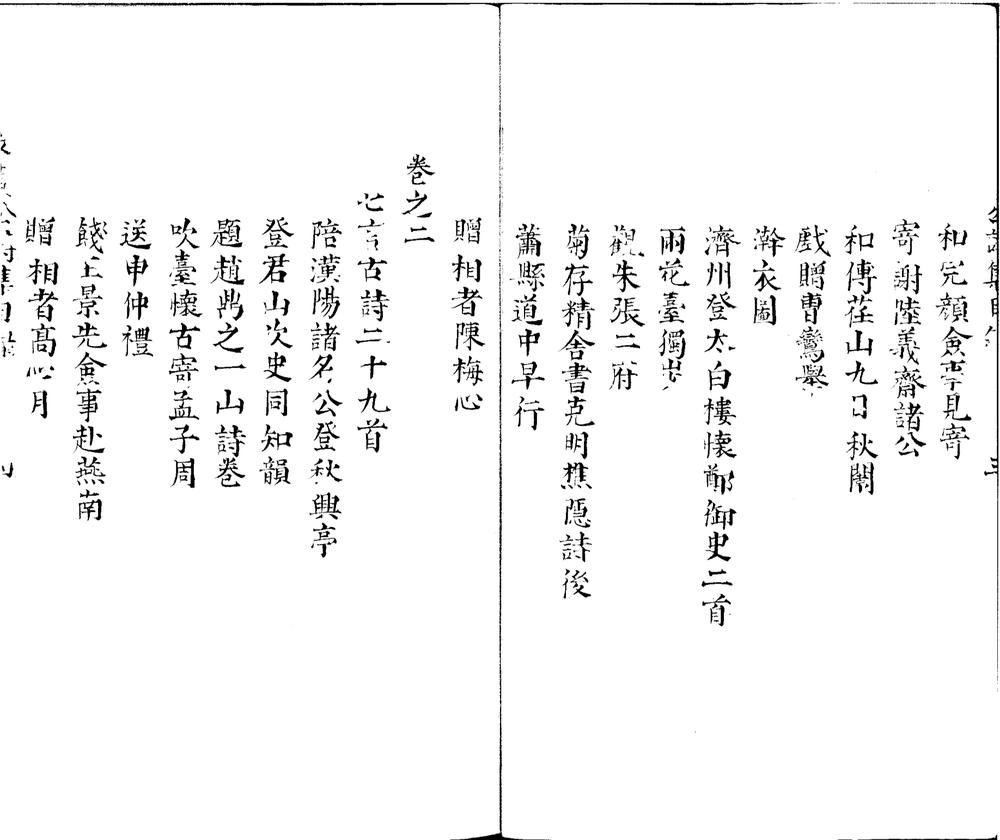 和完顔僉亭見寄
寄謝陸義齋諸公
和傅荘山九日秋闈
戲贈曹鸞舉
澣衣圖
濟州登太白樓懷鄭御史二首
雨花臺獨步
觀朱張二府
菊存精舍書克明樵隱詩後
蕭縣道中早行
贈相者陳梅心
卷之二
七言古詩二十九首
陪漢陽諸名公登秋興亭
登君山次史同知韻
題趙鼎之一山詩卷
吹臺懷古寄孟子周
送申仲禮
餞王景先僉事赴燕南
贈相者髙心月